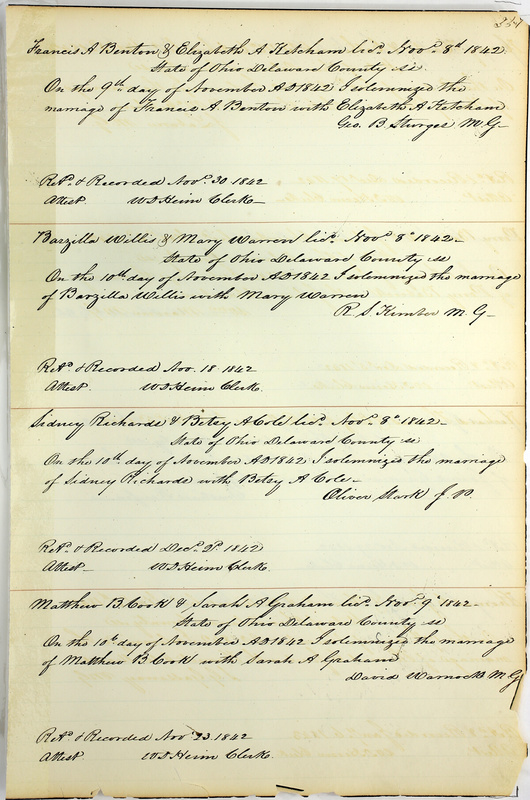 337
Francis A Benton & Elizabeth A Ketcham licd. Novr. 8th 1842.
State of Ohio Delaware County ss.
On the 9th day of November AD 1842 I solemnized the
marriage of Francis A. Benton with Elizabeth A Ketcham
Geo. B. Sturges M.G.
Retd. & Recorded Novr. 30 1842
Attest. W D Heim Clerk
Barzilla Willis & Mary Warren licd. Novr. 8th 1842
State of Ohio Delaware County ss
On the 10th day of November AD 1842 I solemnized the marriage
of Barzilla Willis with Mary Warren
R. S. Kimber M.G.
Retd. & Recorded Nov. 18 1842
Attest. W D Heim Clerk.
Sidney Richards & Betsy A Cole licd. Novr. 8th 1842
State of Ohio Delaware County ss
On the 10th day of November AD 1842 I solemnized the marriage
of Sidney Richards with Betsy A Cole
Oliver Stark J. P.
Retd. & Recorded Decr. 1842
Attest W D Heim Clerk.
Matthew B. Cook & Sarah A Graham licd. Novr. 9th 1842
State of Ohio Delaware County ss
On the 10th day of November AD 1842 I solemnized the marriage
of Matthew B Cook with Sarah A Graham
David Warnock M.G
Retd. & Recorded Novr 23. 1842
Attest. W D Heim Clerk.